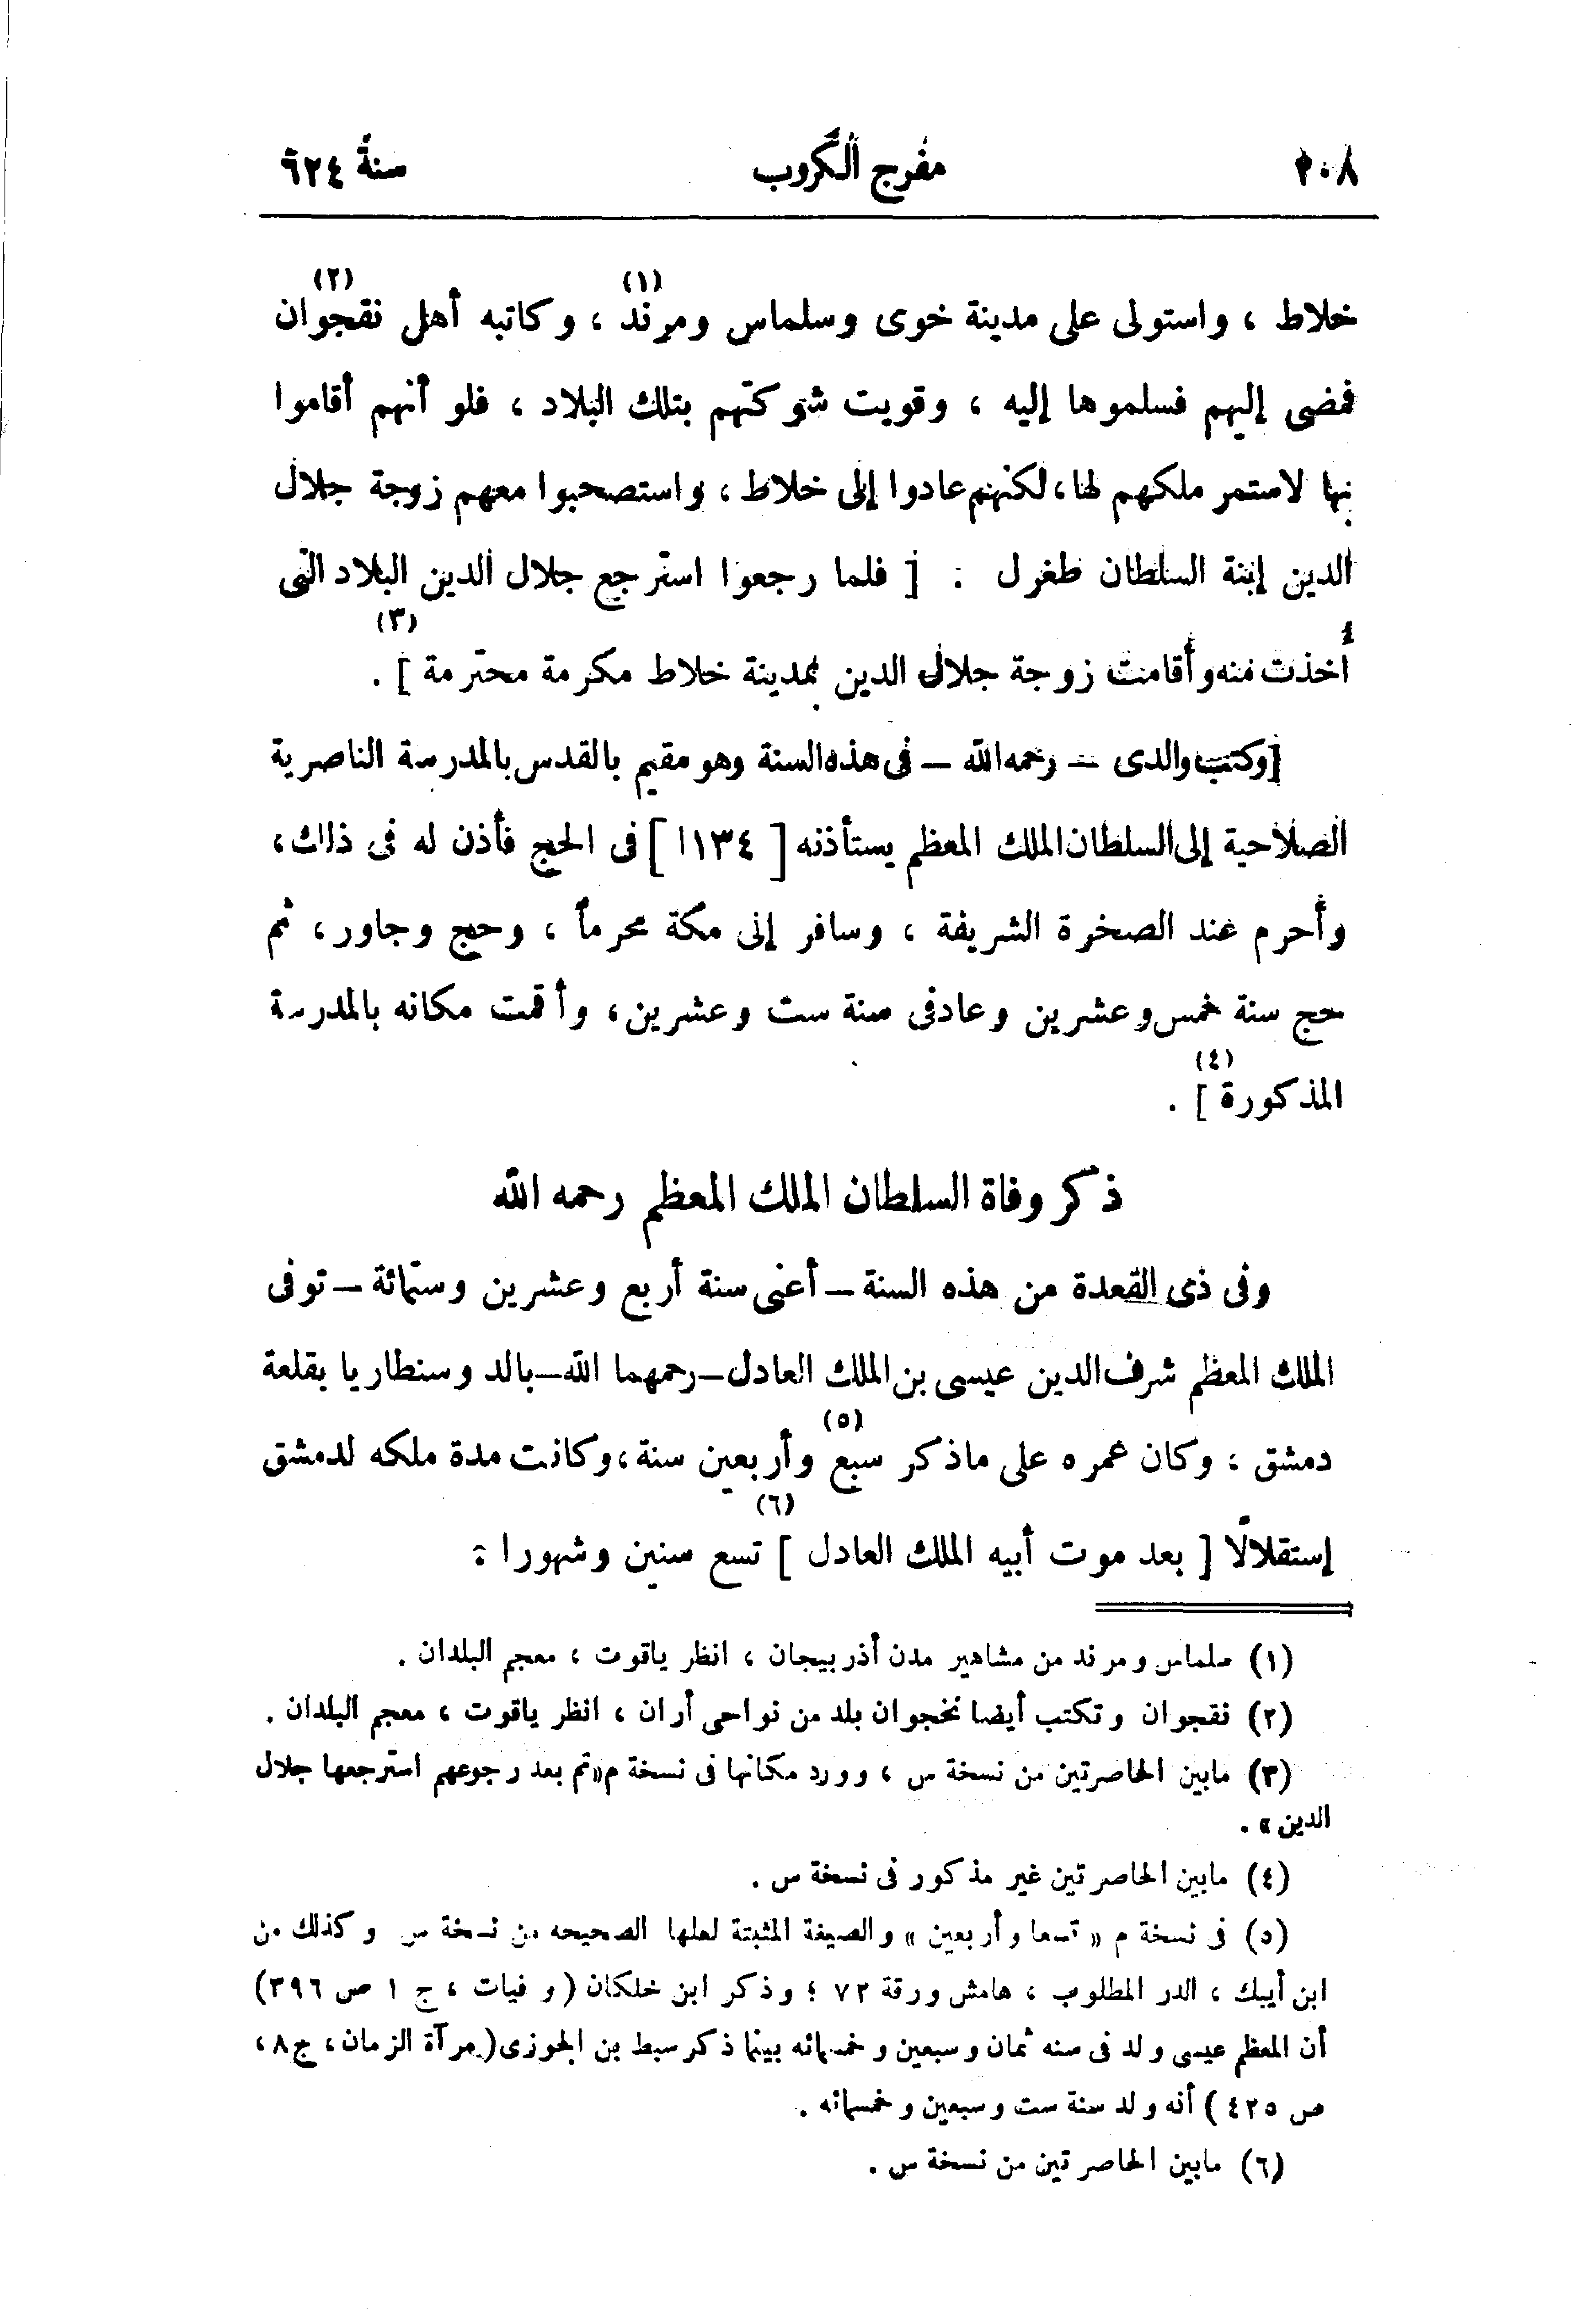 ٢٠٨ مفرج الكروب سنة ٦٢٤
خلاط ، واستولى على مدينة خوى وسلماس ومرند (١) ، وكاتبه أهل نقجوان (٢)
فمضى إليهم فسلموها إليه ، وقويت شوكتهم بتلك البلاد ، فلو أنهم أقاموا
بها لاستمر ملكهم لها ، لكنهم عادوا إلى خلاط ، واستصحبوا معهم زوجة جلال
الدين إبنة السلطان طغرل . [ فلما رجعوا استرجع جلال الدين البلاد التى
أُخذت منه وأقامت زوجة جلال الدين بمدينة خلاط مكرمة محترمة ] (٣) .
[وكتب والدى – رحمه الله – فى هذه السنة وهو مقيم بالقدس بالمدرسة الناصرية
الصلاحية إلى السلطان الملك المعظم يستأذنه [ ١٣٤ا ] فى الحج فأذن له فى ذلك ،
وأحرم عند الصخرة الشريفة ، وسافر إلى مكة محرماً ، وحج وجاور ، ثم
حج سنة خمس وعشرين وعاد فى سنة ست وعشرين ، وأقمت مكانه بالمدرسة
المذكورة ] (٤) .
ذكر وفاة السلطان الملك المعظم رحمه الله
وفى ذى القعدة من هذه السنة – أعنى سنة أربع وعشرين وستمائة – توفى
الملك المعظم شرف الدين عيسى بن الملك العادل – رحمهما الله – بالدوسنطاريا بقلعة
دمشق ؛ وكان عمره على ما ذكر سبع (٥) وأربعين سنة ، وكانت مدة ملكه لدمشق
إستقلالًا [ بعد موت أبيه الملك العادل ] (٦) تسع سنين وشهورا :
(١) سلماس ومرند من مشاهير مدن أذربيجان ، انظر ياقوت ، معجم البلدان .
(٢) نقجوان وتكتب أيضا نخجوان بلد من نواحى أران ، انظر ياقوت ، معجم البلدان .
(٣) مابين الحاصرتين من نسخة س ، وورد مكانها فى نسخة م «ثم بعد رجوعهم استرجعها جلال
الدين » .
(٤) مابين الحاصرتين غير مذكور فى نسخة س .
(٥) فى نسخة م « تسعا وأربعين » والصيغة المثبتة لعلها الصحيحه من نسخة س وكذلك من
ابن أيبك ، الدر المطلوب ، هامش ورقة ٧٢ ؛ وذكر ابن خلكان ( وفيات ، ج ١ ص ٣٩٦)
أن المعظم عيسى ولد فى سنه ثمان وسبعين وخمسمائه بينما ذكر سبط بن الجوزى (مرآة الزمان ، ج ٨ ،
ص ٤٢٥ ) أنه ولد سنة ست وسبعين وخمسمائه .
(٦) مابين الحاصرتين من نسخة س .